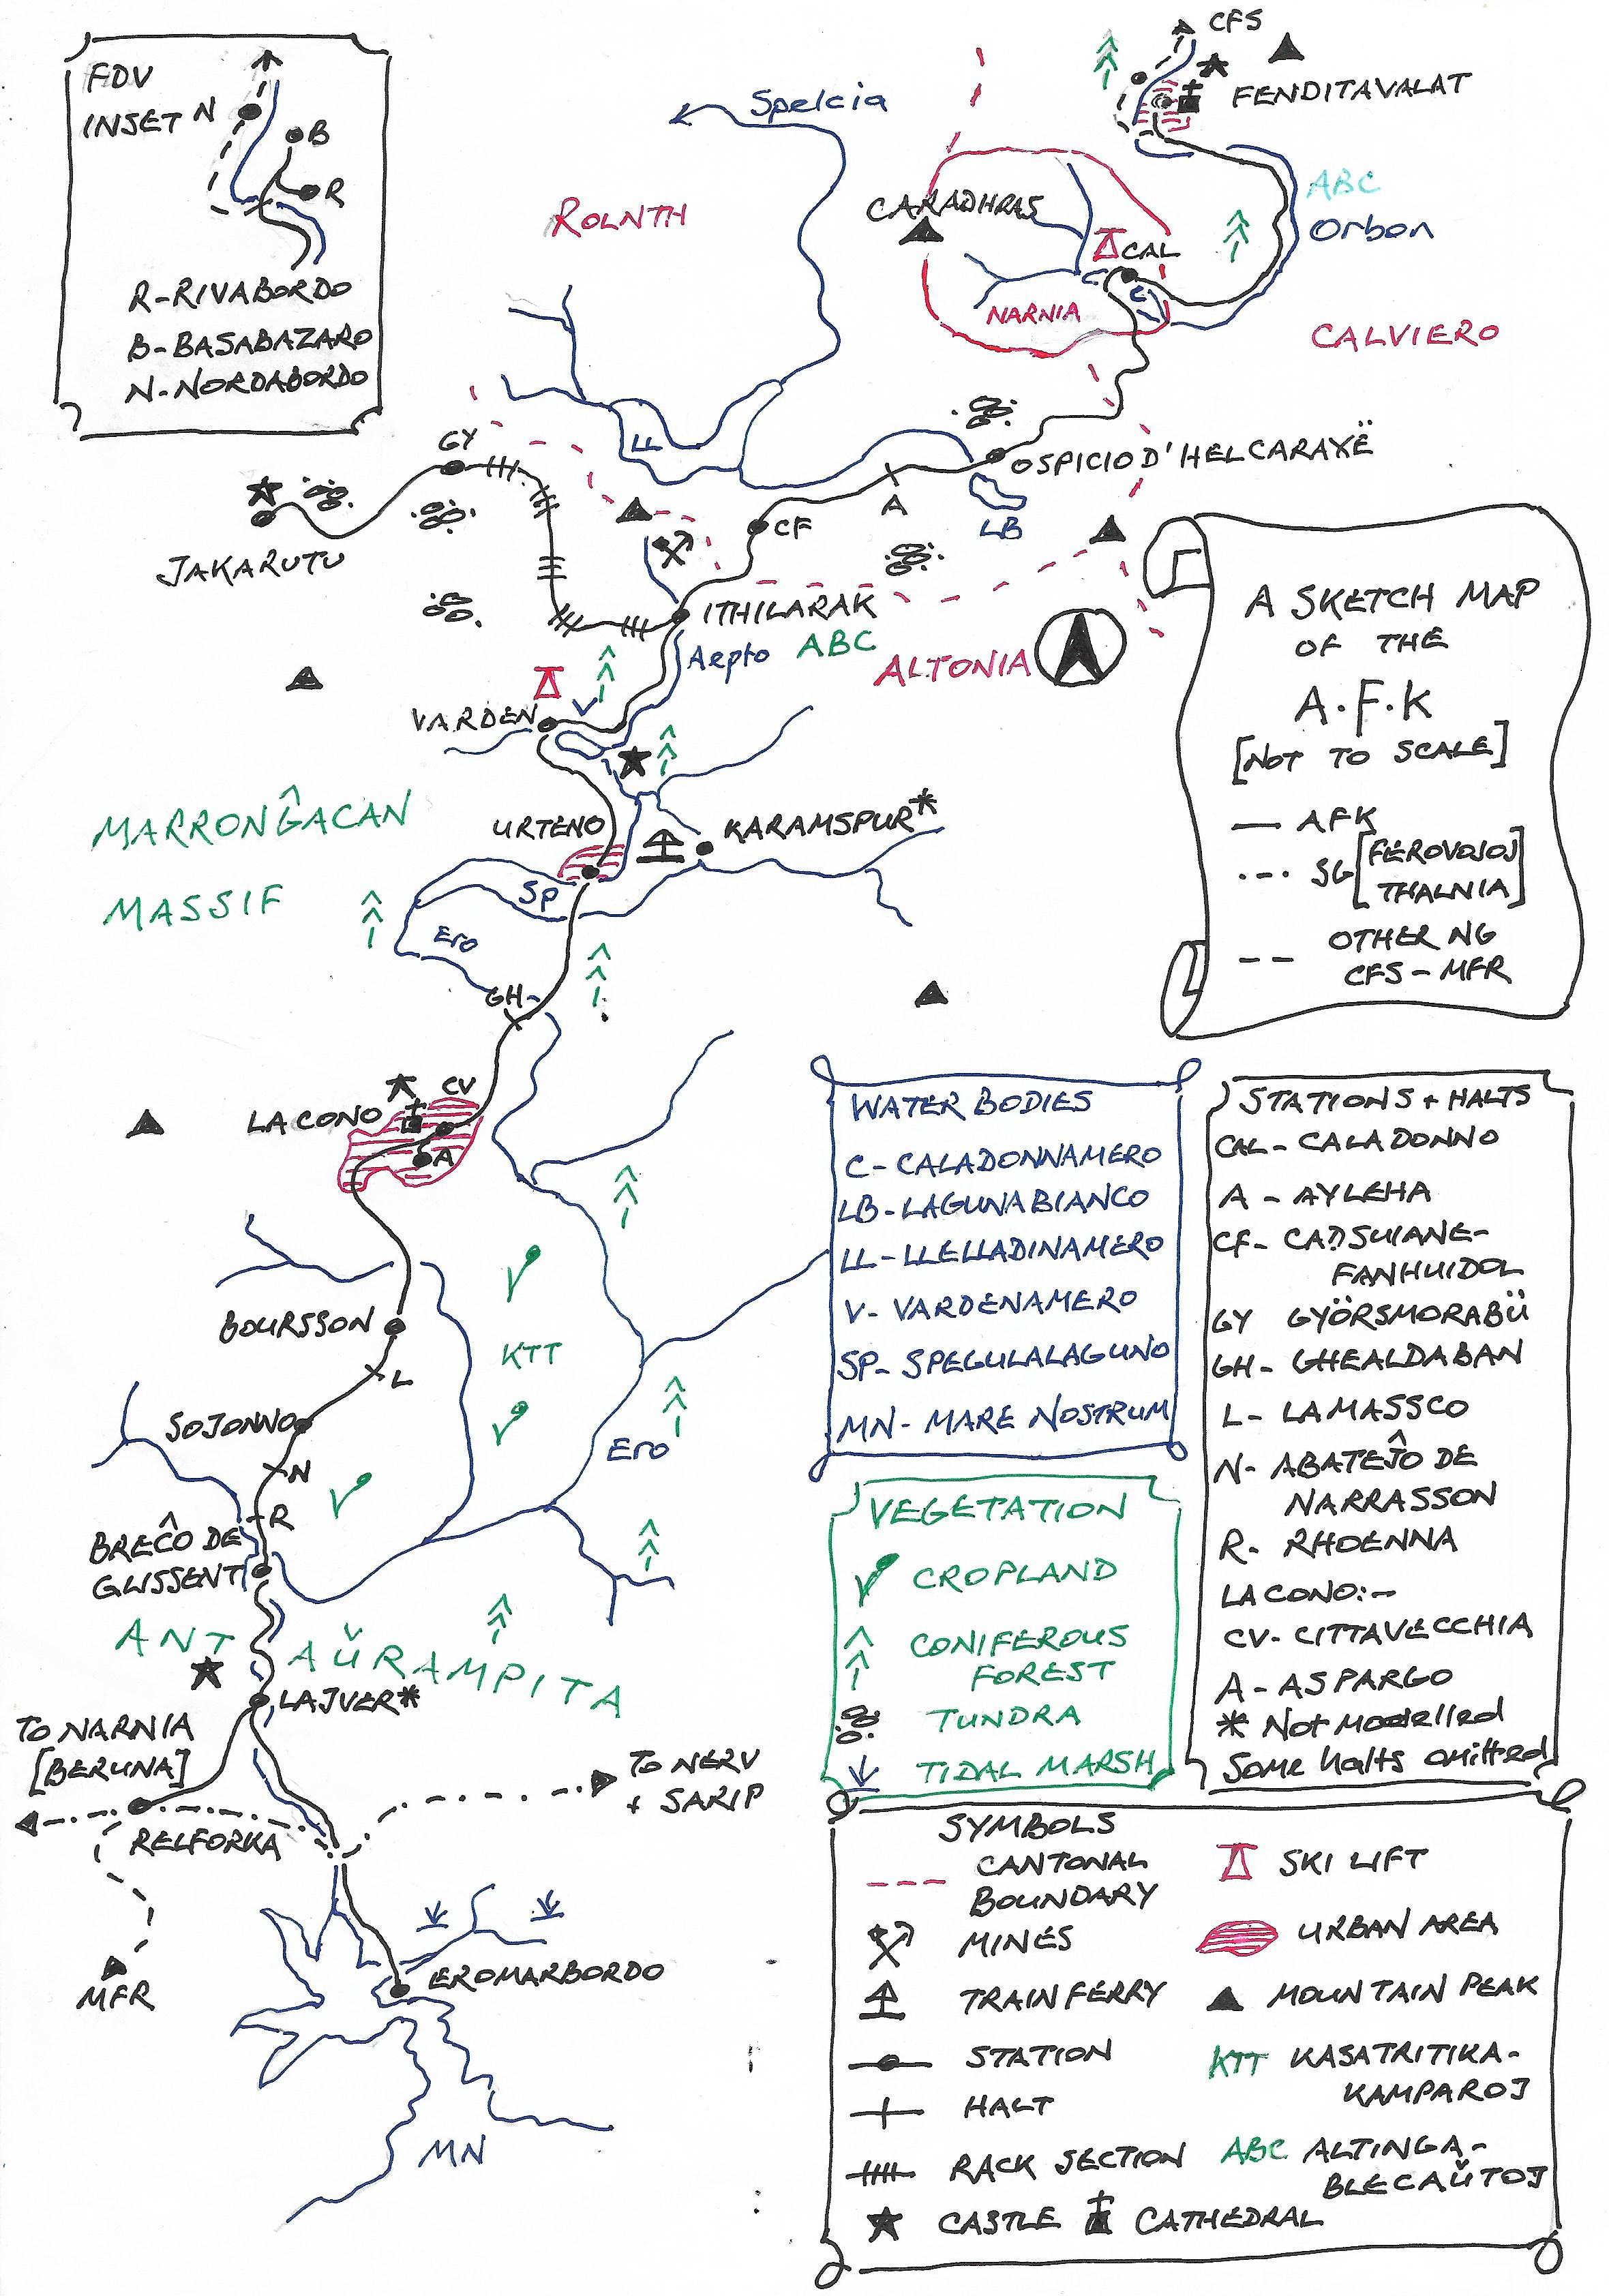 FDV
INSET N
B
R
R-RIVABORDO
B-BASABAZARO
N-NORDABORDO
CFS
FENDITAVALAT
Spelcia
ROLNTH
CARADHRAS
ABC
Orbon
CAL
C
C
NARNIA
CALVIERO
LL
GY
OSPICIO D'HELCARAXË
A
LB
CF
JAKARUTU
ITHILARAK
Aepto
ABC
ALTONIA
VARDEN
V
MARRONĜACAN
MASSIF
URTENO
KARAMSPUR*
SP
Ero
GH
A SKETCH MAP
OF THE
A.F.K
[NOT TO SCALE]
AFK
SG [FEROVOJOJ
THALNIA]
OTHER NG
CFS-MFR
LACONO
CV
A
BOURSSON
L
KTT
SOJONNO
N
R
Ero
BREĈO DE
GLISSENT
ANT AŬRAMPITA
LAJVER*
TO NARNIA
[BERUNA]
RELFORKA
TO NERV
+ SARIP
MFR
EROMARBORDO
MN
WATER BODIES
C- CALADONNAMERO
LB- LAGUNABIANCO
LL- LLELLADINAMERO
V- VARDENAMERO
SP- SPEGULALAGUNO
MN- MARE NOSTRUM
VEGETATION
CROPLAND
CONIFEROUS
FOREST
TUNDRA
TIDAL MARSH
STATIONS + HALTS
CAL- CALADONNO
A - AYLEHA
CF- CADSUIANE-
FANHUIDOL
GY GYÖRSMORABÜ
GH- GHEALDABAN
L- LAMASSCO
N- ABATEĴO DE
NARRASSON
R- RHOENNA
LACONO:-
CV- CITTAVECCHIA
A- ASPARGO
* Not modelled
Some halts omitted
SYMBOLS
CANTONAL
BOUNDARY
MINES
TRAIN FERRY
STATION
HALT
RACK SECTION
CASTLE
CATHEDRAL
SKI LIFT
URBAN AREA
MOUNTAIN PEAK
KTT KASATRITIKA-
KAMPAROJ
ABC ALTINGA-
BLECAŬTOJ